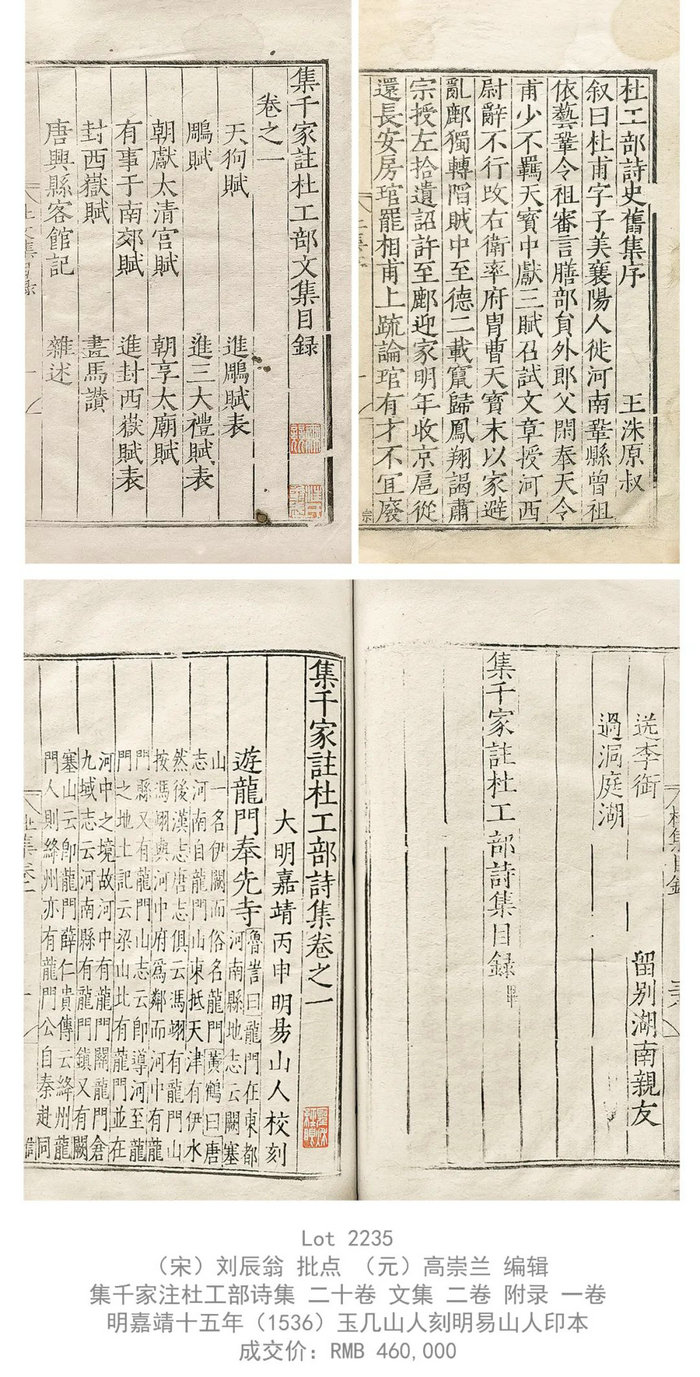 集千家註杜工部文集目録
卷之一
天狗賦
進鵰賦表
鵰賦
進三大禮賦表
朝獻太清宫賦
朝享太廟賦
有事于南郊賦
進封西嶽賦表
封西嶽賦
畫馬讃
唐興縣客館記
雜述
杜工部詩史舊集序
王洙原叔
叙曰杜甫字子美襄陽人徙河南鞏縣曾祖
依藝鞏令祖審言膳部貟外郎父閑奉天令
甫少不羈天寳中獻三賦召試文章授河西
尉辭不行攺右衛率府胄曹天寳末以家避
亂鄜獨轉䧟賊中至德二載竄歸鳳翔謁肅
宗授左拾遺詔許至鄜迎家明年收京扈從
還長安房琯罷相甫上䟽論琯有才不宜廢
送李銜
留别湖南親友
過洞庭湖
集千家註杜工部詩集目録
集千家註杜工部詩集卷之一
大明嘉靖丙申明易山人校刻
遊龍門奉先寺
魯訔曰龍門在東都
河南縣地志云闕塞
山一名伊闕而俗名龍門黄鶴曰唐
志河南自龍門山東抵天津有伊水
然後漢志唐志俱云馮翊有龍門山
按馮翊與河中府爲鄰而河中有龍
門縣又有龍門山志云即導河至龍
門之地土記云梁山北有龍門並在
河中之境故河中有龍門關龍門倉
九域志云河南縣有龍門鎮又有闕
塞山云即龍門薛仁貴傳云絳州龍
門人則絳州亦有龍門公自秦赴同
Lot 2235
（宋）刘辰翁 批点 （元）高崇兰 编辑
集千家注杜工部诗集 二十卷 文集 二卷 附录 一卷
明嘉靖十五年（1536）玉几山人刻明易山人印本
成交价：RMB 460,000